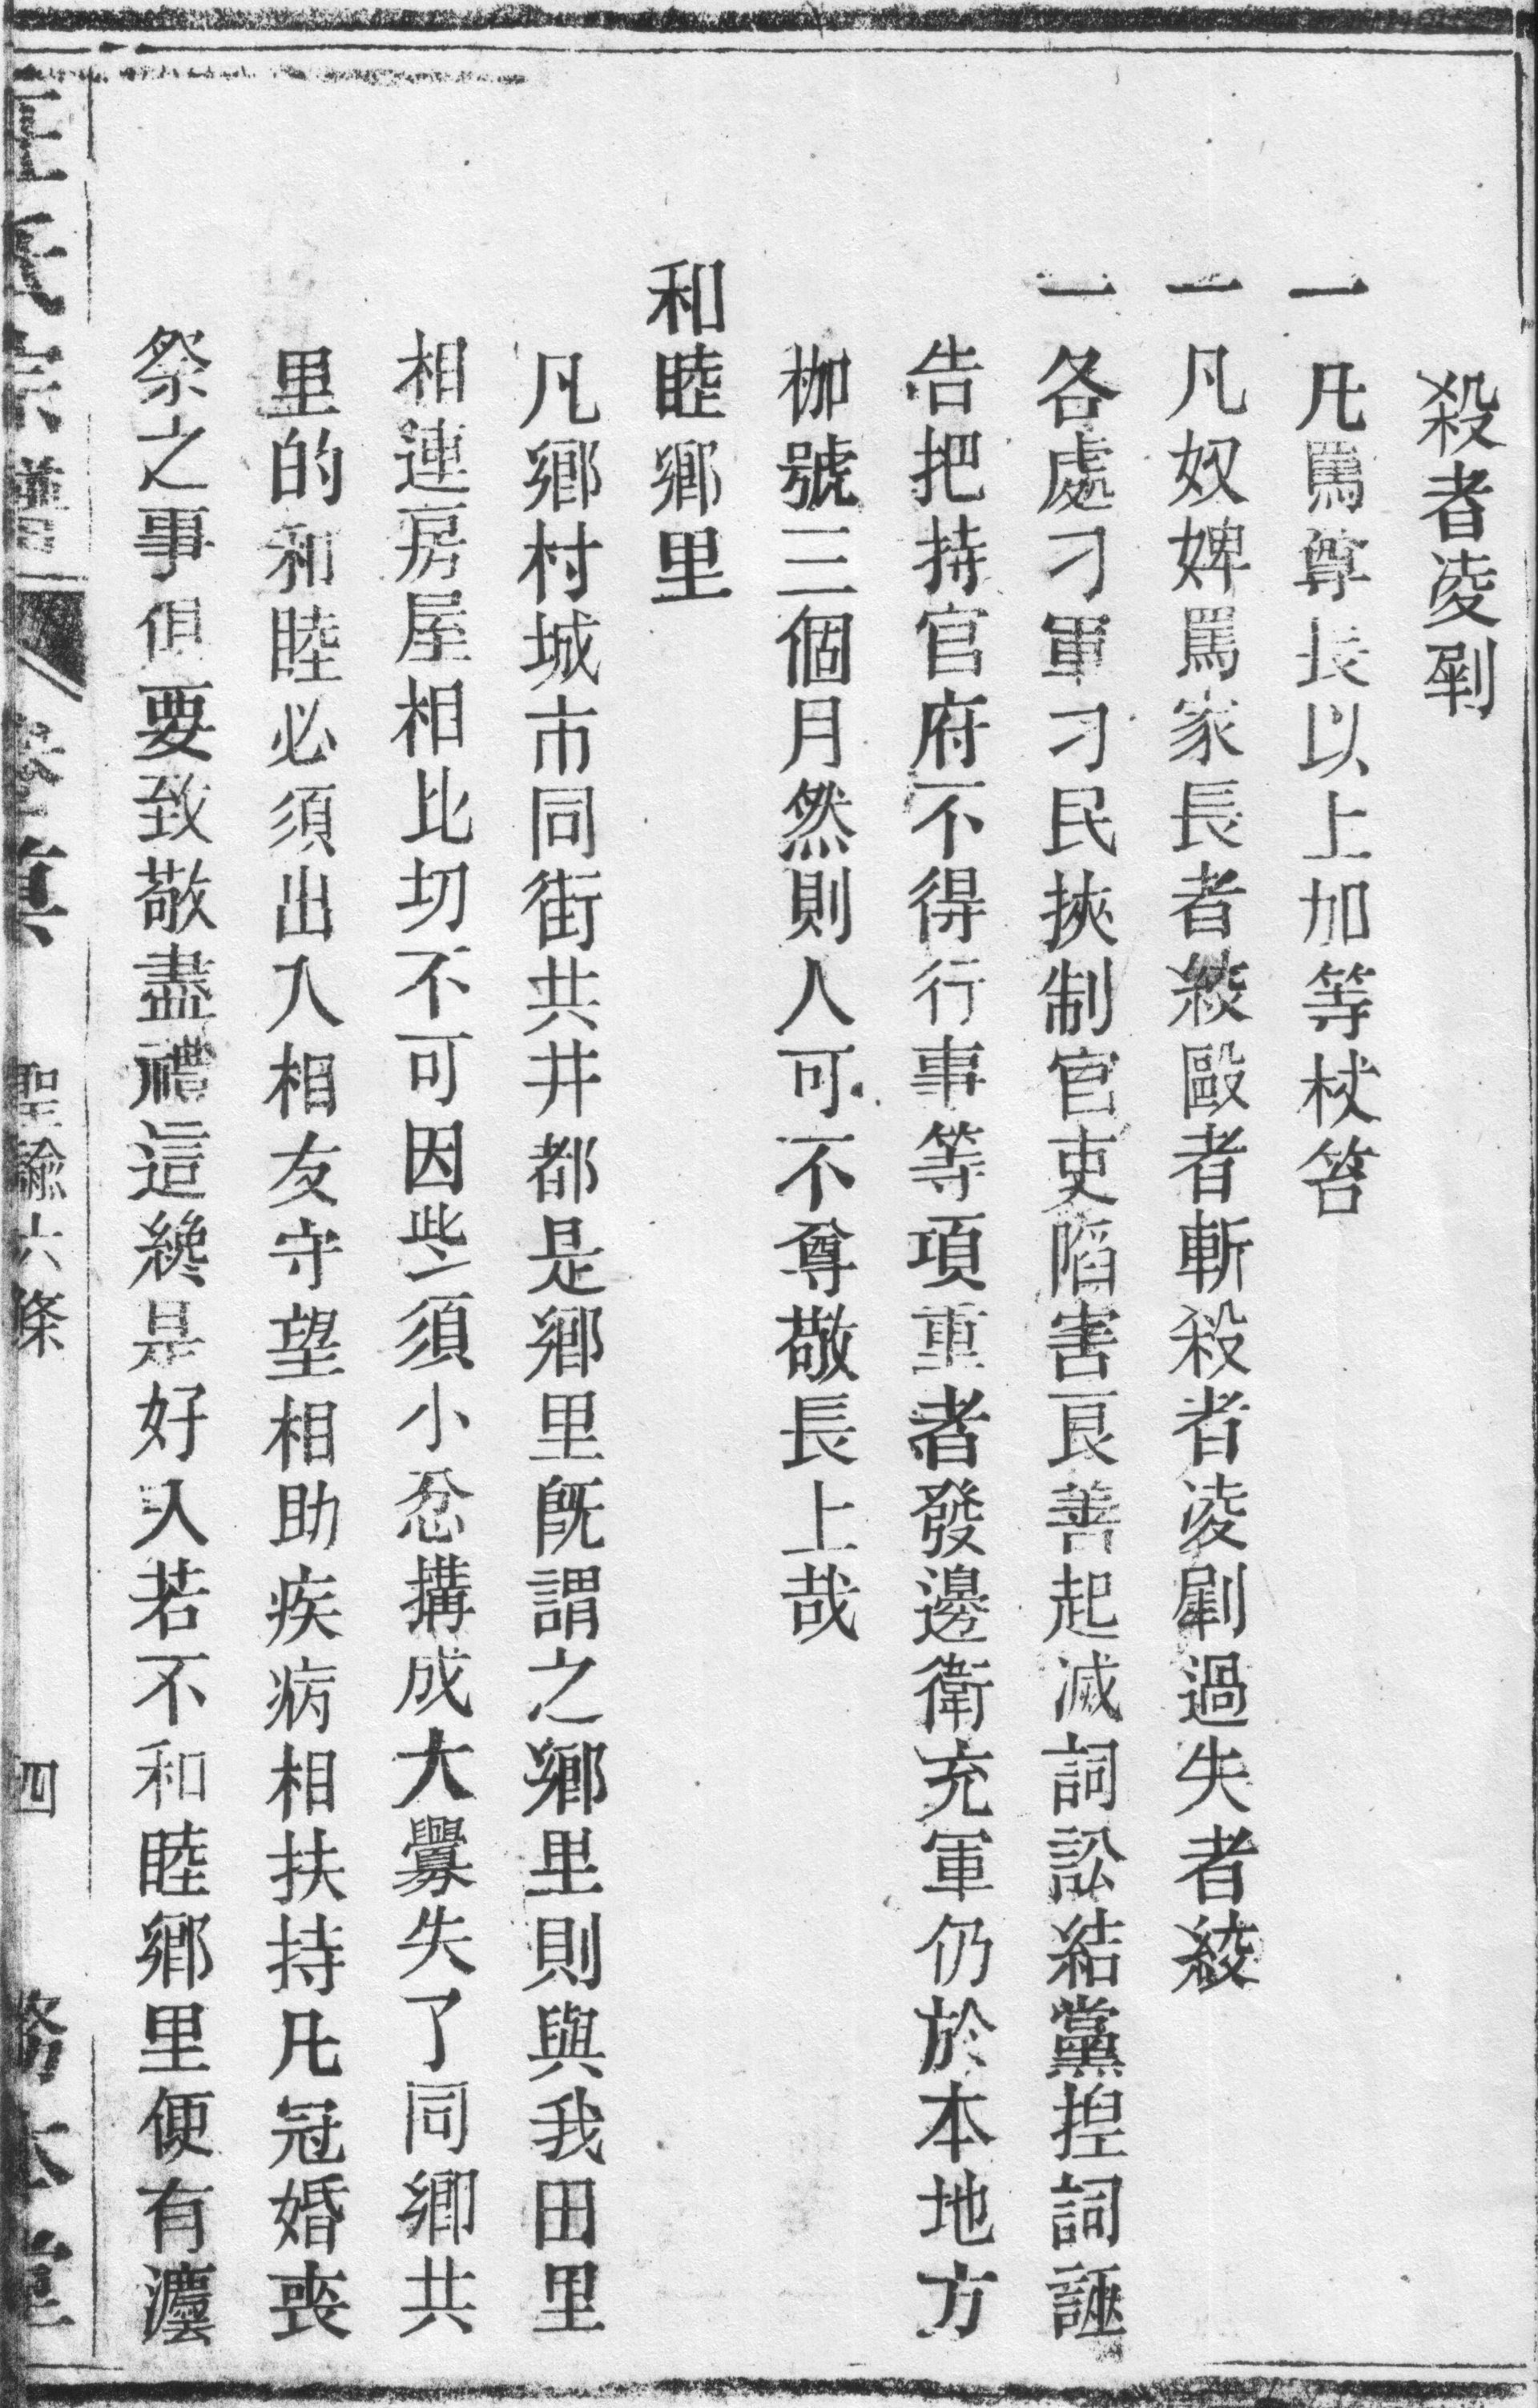 殺者凌剮
一凡罵尊長以上加等杖笞
一凡奴婢罵家長者絞毆者斬殺者凌剮過失者絞
一各處刁軍刁民挾制官吏陷害良善起滅詞訟結黨揑詞誣
告把持官府不得行事等項重者發邊衛充軍仍於本地方
枷號三個月然則人可不尊敬長上哉
和睦鄉里
凡鄉村城市同街共井都是鄉里旣謂之鄉里則與我田里
相連房屋相比切不可因些須小忿搆成大釁失了同鄉共
里的和睦必須出入相友守望相助疾病相扶持凡冠婚喪
祭之事俱要致敬盡禮這纔是好人若不和睦鄉里便有灋
氏宗譜 卷 聖諭六條 四 務本堂